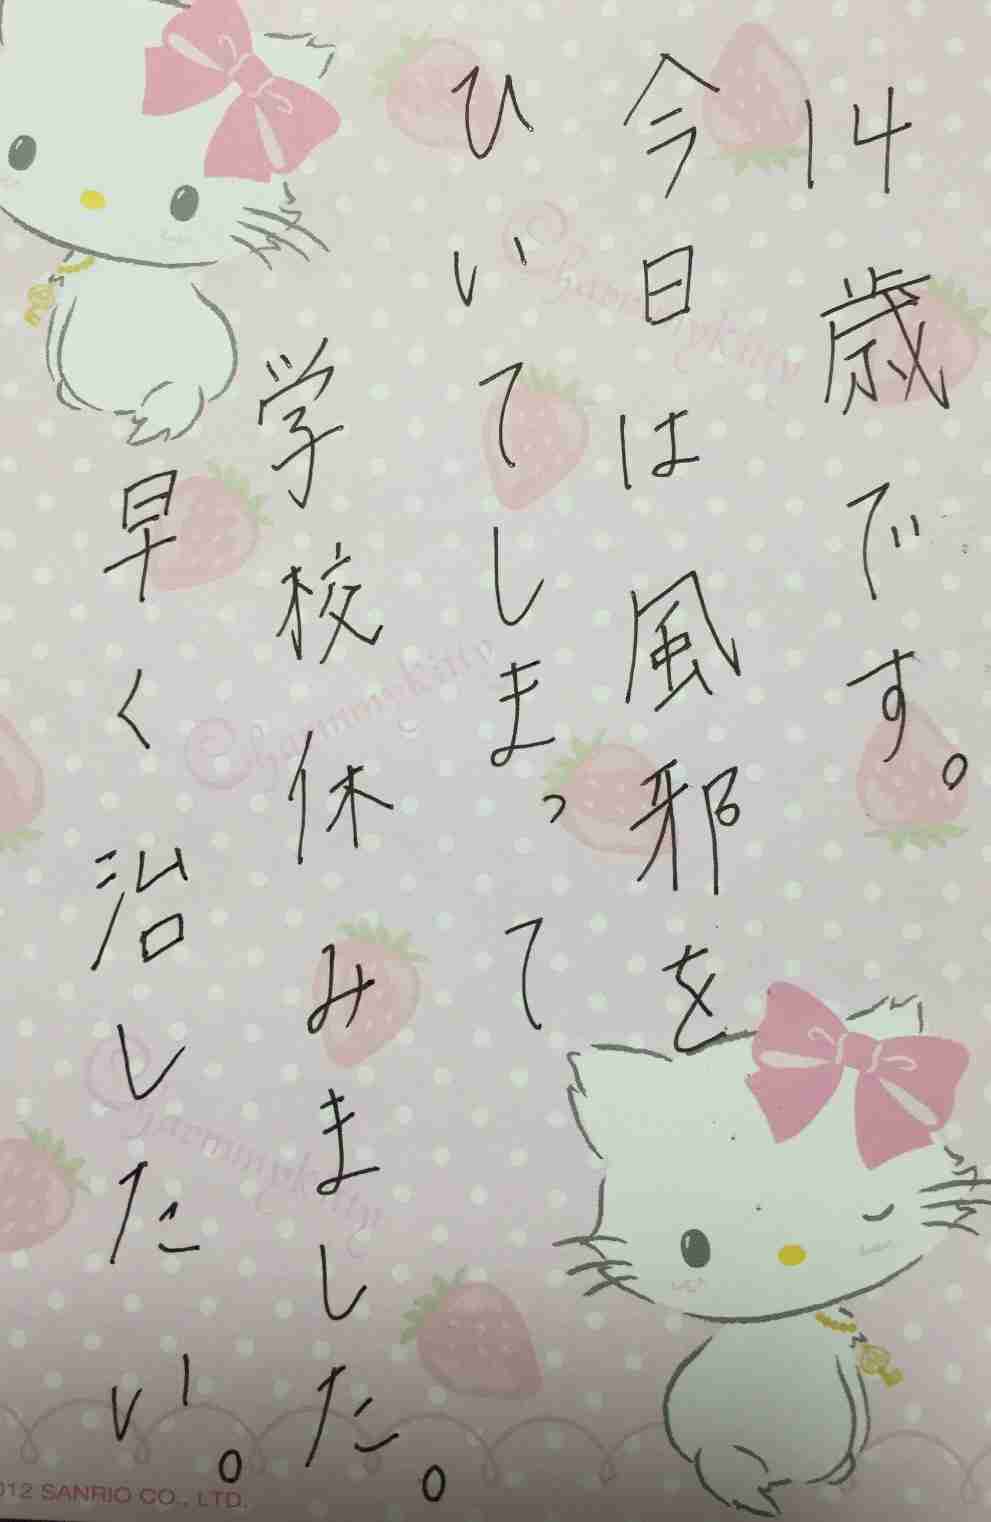 14歳です。
今日は風邪を
ひいてしまって
学校休みました。
早く治したい。
Charmmykitty
Charmmykitty
Charmmykitty
012 SANRIO CO., LTD.